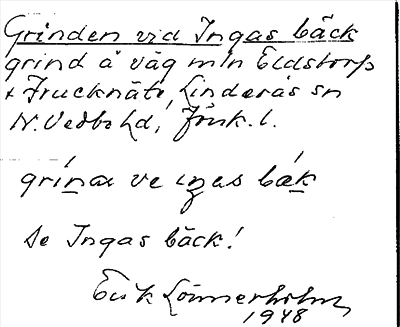 Grinden vid Ingas bäck
grind å väg mln Eldstorp
+ Frucknäte, Linderås sn
N. Vedbo hd, Jönk. l.
grína ve iŋas bák
se Ingas bäck!
Erik Lönnerholm
1948